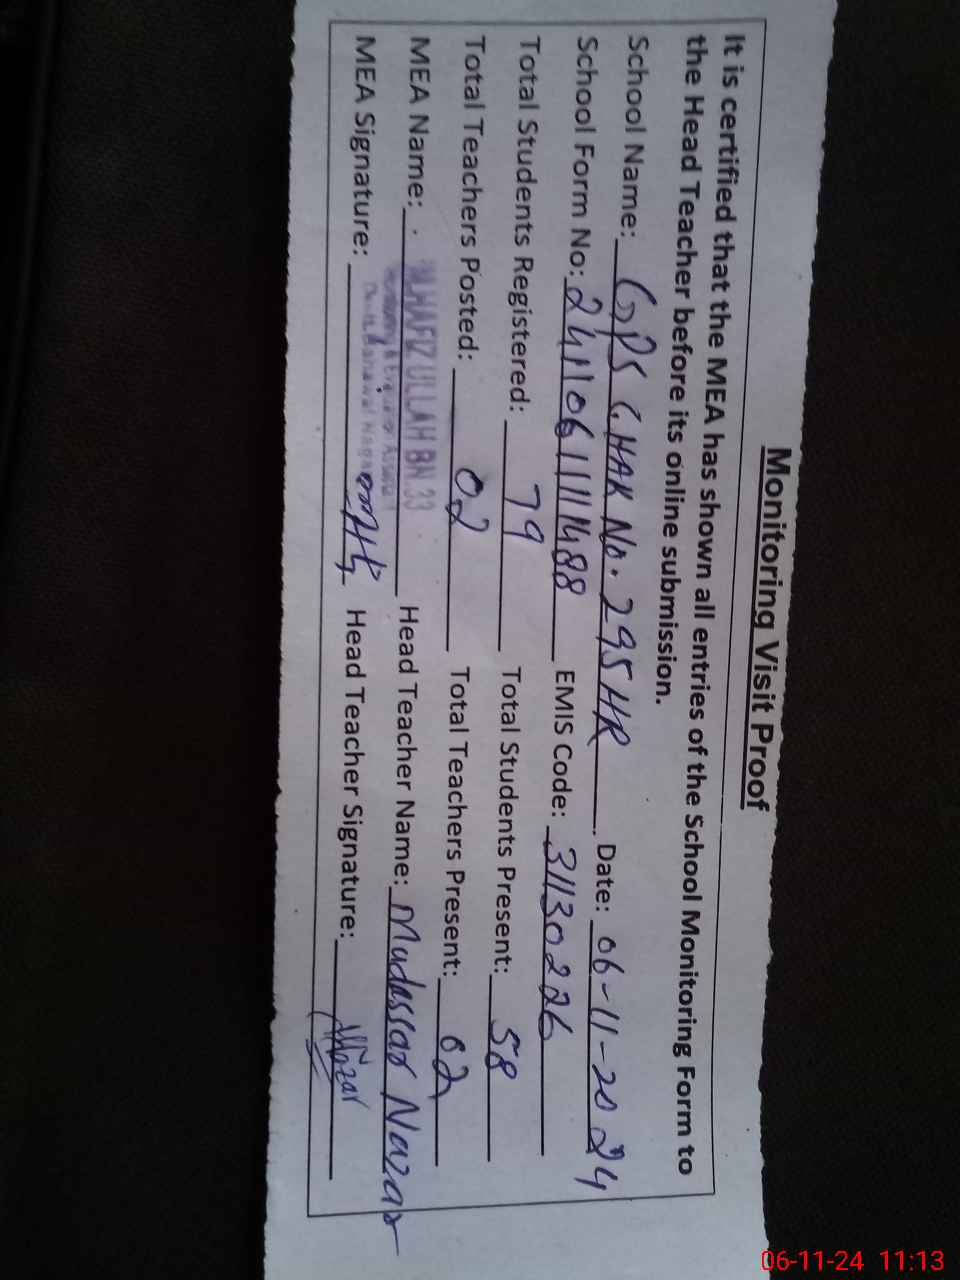 Monitoring Visit Proof
It is certified that the MEA has shown all entries of the School Monitoring Form to
the Head Teacher before its online submission.
School Name: GPS CHAK No. 295HR Date: 06-11-2024
School Form No: EMIS Code: 31130226
Total Students Registered: 79 Total Students Present: 58
Total Teachers Posted: 02 Total Teachers Present: 02
MEA Name: HAFIZ ULLAH BN.33 Head Teacher Name: Mudassar Nazar
MEA Signature: Head Teacher Signature: Nazar
06-11-24 11:13